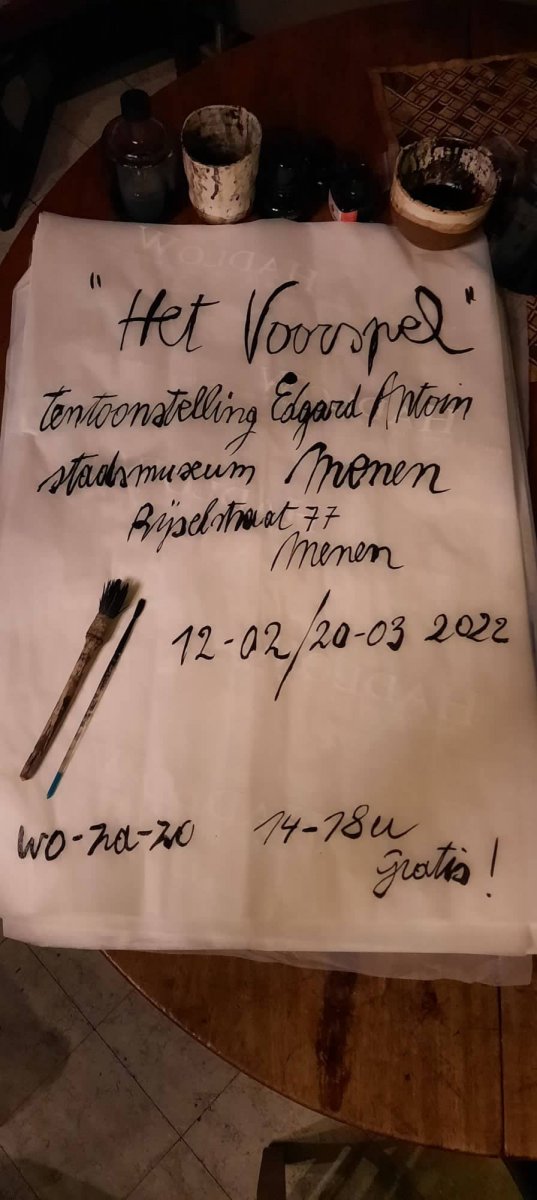 HADLOW
HADLOW
"Het Voorspel"
tentoonstelling Edgard Antoin
stadsmuseum Menen
Rijselstraat 77
Menen
12-02/20-03 2022
wo-za-zo 14-18u
Gratis!